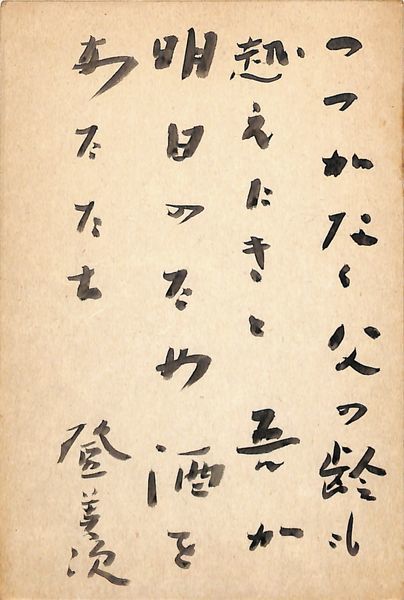 つつかなく父の齢も
越えにきと 吾か
明日のため 酒を
あたたむ
登美次